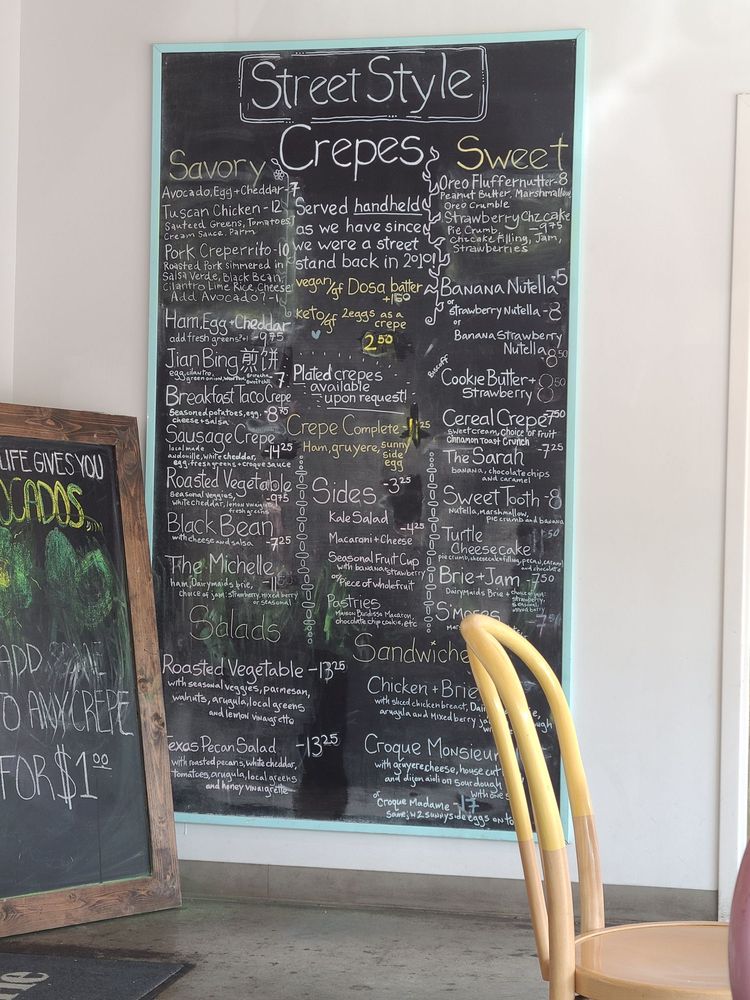 Street Style
Crepes
Savory
Avocado, Egg + Cheddar - 7
Tuscan Chicken - 12
Sauteed Greens, Tomatoes,
Cream Sauce, Parm
Pork Creperrito - 10
Roasted Pork simmered in
Salsa Verde, Black Bean
Cilantro Lime Rice, Cheese
Add Avocado?-1
Ham, Egg + Cheddar
add fresh greens?+1 -9.75
Jian Bing 煎饼
egg, cilantro, - 7
Breakfast Taco Crepe
Seasoned potatoes, egg, -8.75
cheese + salsa
Sausage Crepe
local made -14.25
andouille, white cheddar,
egg, fresh greens + croque sauce
Roasted Vegetable
Seasonal veggies, -9.75
white cheddar, lemon vinaigrette
Black Bean
with cheese and salsa -7.25
The Michelle
ham, Dairymaids brie,
choice of jam: strawberry, mixed berry
or seasonal
Served handheld
as we have since
we were a street
stand back in 2010!
vegan/gf Dosa batter
keto/gf 2 eggs as a
crepe
2 50
Plated crepes
available
upon request!
Crepe Complete
Ham, gruyere, sunny
side
egg
Sides -3 25
Kale Salad
Macaroni + Cheese
Seasonal Fruit Cup
with banana + strawberry
or Piece of whole fruit
Pastries
chocolate chip cookie, etc
Sweet
Oreo Fluffernutter - 8
Peanut Butter, Marshmallow
Oreo Crumble
Strawberry Chzcake
Pie Crumb, -9.75
chzcake filling, Jam,
Strawberries
Banana Nutella - 5
or
Strawberry Nutella - 8
or
Banana Strawberry
Nutella 8 50
Biscoff
Cookie Butter +
Strawberry 8 50
Cereal Crepe 7 50
sweet cream, choice of Fruit
Cinnamon Toast Crunch
The Sarah -7 25
banana, chocolate chips
and caramel
Sweet Tooth - 8
Nutella, marshmallow,
pie crumb and banana
Turtle
Cheesecake
pie crumb, cheesecake filling, pecan, caramel
and chocolate
Brie + Jam -7 50
Dairymaids Brie +
S'mores
Salads
Roasted Vegetable -13 25
with seasonal veggies, parmesan,
walnuts, arugula, local greens
and lemon vinaigrette
Texas Pecan Salad -13 25
with roasted pecans, white cheddar,
tomatoes, arugula, local greens
and honey vinaigrette
Sandwiche
Chicken + Brie
with sliced chicken breast,
arugula and mixed berry
Croque Monsieur
with gruyere cheese, house cut
and dijon aioli on sourdough
with one s
or Croque Madame - 17
Same, w 2 sunnyside eggs on to
LIFE GIVES YOU
OCADOS
ADD SOME
TO ANY CREPE
FOR $1 00
me